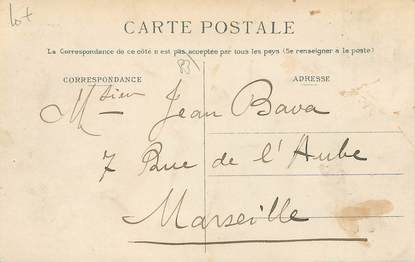 Lot
CARTE POSTALE
La Correspondance de ce côté n'est pas acceptée par tous les pays (Se renseigner à la poste)
83
CORRESPONDANCE
ADRESSE
Msieu Jean Bava
7 Rue de l'Aube
Marseille